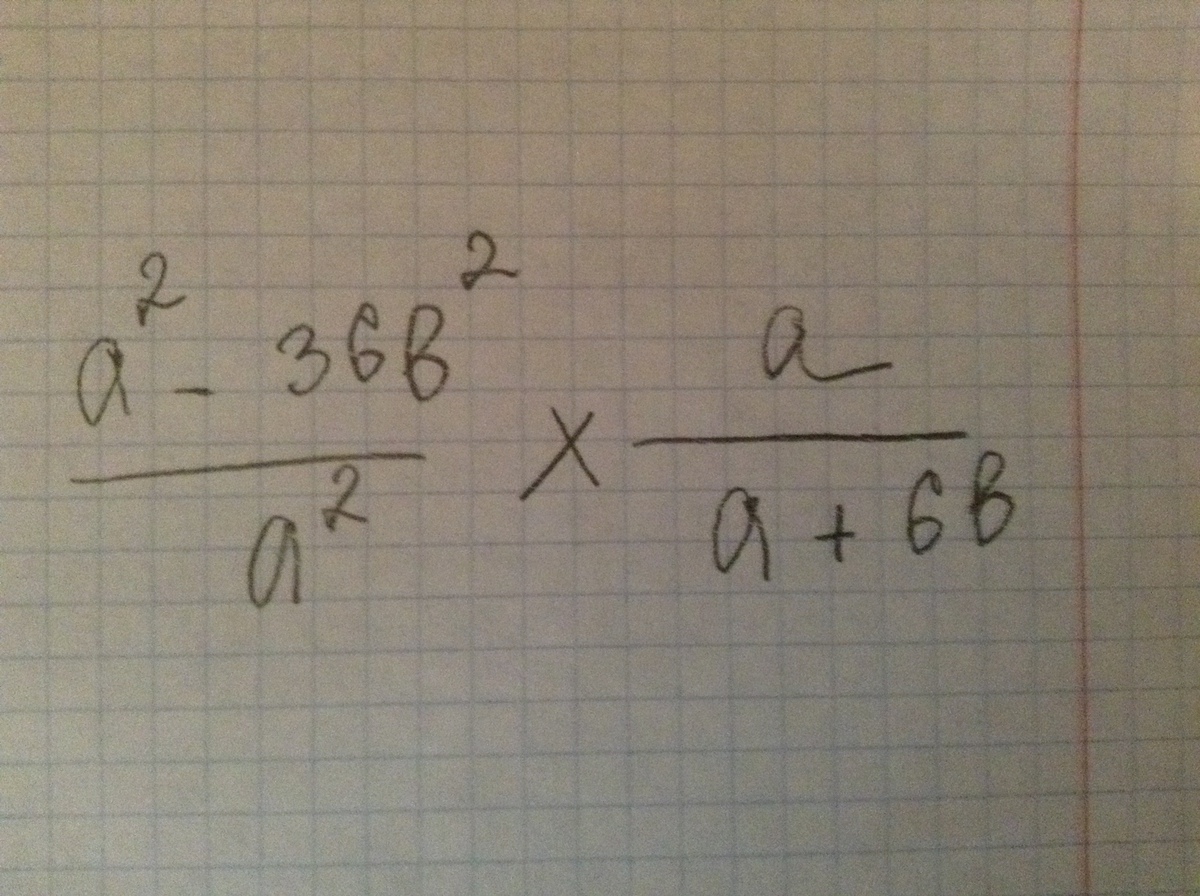 a² - 36в² / a² × a / a + 6в